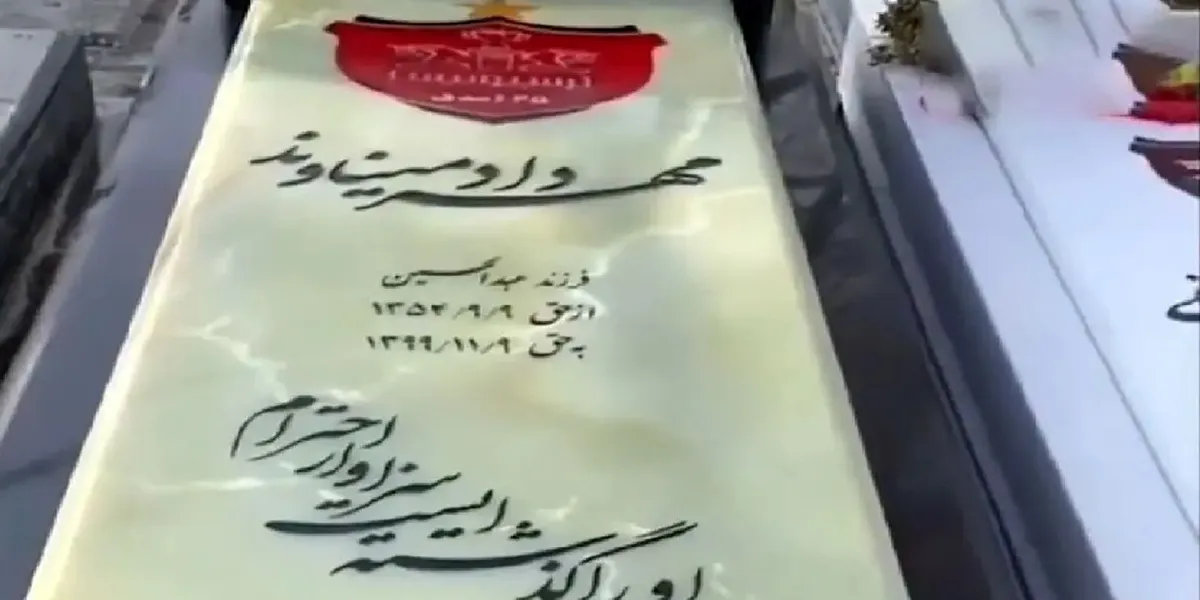 پرسپولیس
مهرداد میناوند
فرزند عبدالحسین
از حق ۱۳۵۴/۹/۹
به حق ۱۳۹۹/۱۱/۹
او را گذشته
ایست سزاوار احترام